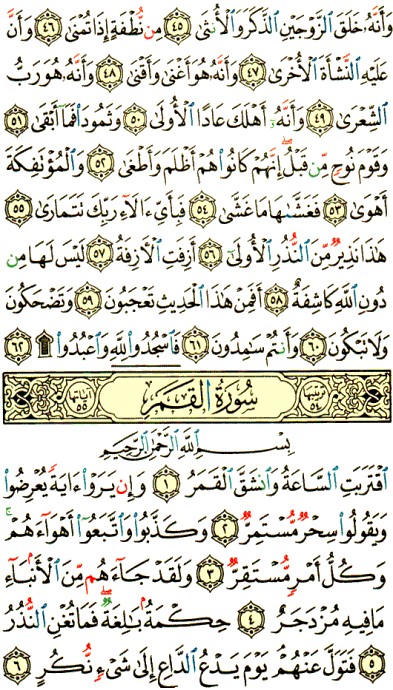 وَأَنَّهُۥ خَلَقَ ٱلزَّوْجَيْنِ ٱلذَّكَرَ وَٱلْأُنثَىٰ ٤٥ مِن نُّطْفَةٍ إِذَا تُمْنَىٰ ٤٦ وَأَنَّ
عَلَيْهِ ٱلنَّشْأَةَ ٱلْأُخْرَىٰ ٤٧ وَأَنَّهُۥ هُوَ أَغْنَىٰ وَأَقْنَىٰ ٤٨ وَأَنَّهُۥ هُوَ رَبُّ
ٱلشِّعْرَىٰ ٤٩ وَأَنَّهُۥٓ أَهْلَكَ عَادًا ٱلْأُولَىٰ ٥٠ وَثَمُودَا۟ فَمَآ أَبْقَىٰ ٥١
وَقَوْمَ نُوحٍ مِّن قَبْلُ ۖ إِنَّهُمْ كَانُوا۟ هُمْ أَظْلَمَ وَأَطْغَىٰ ٥٢ وَٱلْمُؤْتَفِكَةَ
أَهْوَىٰ ٥٣ فَغَشَّىٰهَا مَا غَشَّىٰ ٥٤ فَبِأَىِّ ءَالَآءِ رَبِّكَ تَتَمَارَىٰ ٥٥
هَٰذَا نَذِيرٌ مِّنَ ٱلنُّذُرِ ٱلْأُولَىٰٓ ٥٦ أَزِفَتِ ٱلْءَازِفَةُ ٥٧ لَيْسَ لَهَا مِن
دُونِ ٱللَّهِ كَاشِفَةٌ ٥٨ أَفَمِنْ هَٰذَا ٱلْحَدِيثِ تَعْجَبُونَ ٥٩ وَتَضْحَكُونَ
وَلَا تَبْكُونَ ٦٠ وَأَنتُمْ سَٰمِدُونَ ٦١ فَٱسْجُدُوا۟ لِلَّهِ وَٱعْبُدُوا۟ ۩ ٦٢
ترتيبها ٥٤ سُورَةُ ٱلْقَمَرِ آياتها ٥٥
بِسْمِ ٱللَّهِ ٱلرَّحْمَٰنِ ٱلرَّحِيمِ
ٱقْتَرَبَتِ ٱلسَّاعَةُ وَٱنشَقَّ ٱلْقَمَرُ ١ وَإِن يَرَوْا۟ ءَايَةً يُعْرِضُوا۟
وَيَقُولُوا۟ سِحْرٌ مُّسْتَمِرٌّ ٢ وَكَذَّبُوا۟ وَٱتَّبَعُوٓا۟ أَهْوَآءَهُمْ ۚ
وَكُلُّ أَمْرٍ مُّسْتَقِرٌّ ٣ وَلَقَدْ جَآءَهُم مِّنَ ٱلْأَنۢبَآءِ
مَا فِيهِ مُزْدَجَرٌ ٤ حِكْمَةٌۢ بَٰلِغَةٌ ۖ فَمَا تُغْنِ ٱلنُّذُرُ
٥ فَتَوَلَّ عَنْهُمْ ۘ يَوْمَ يَدْعُ ٱلدَّاعِ إِلَىٰ شَىْءٍ نُّكُرٍ ٦